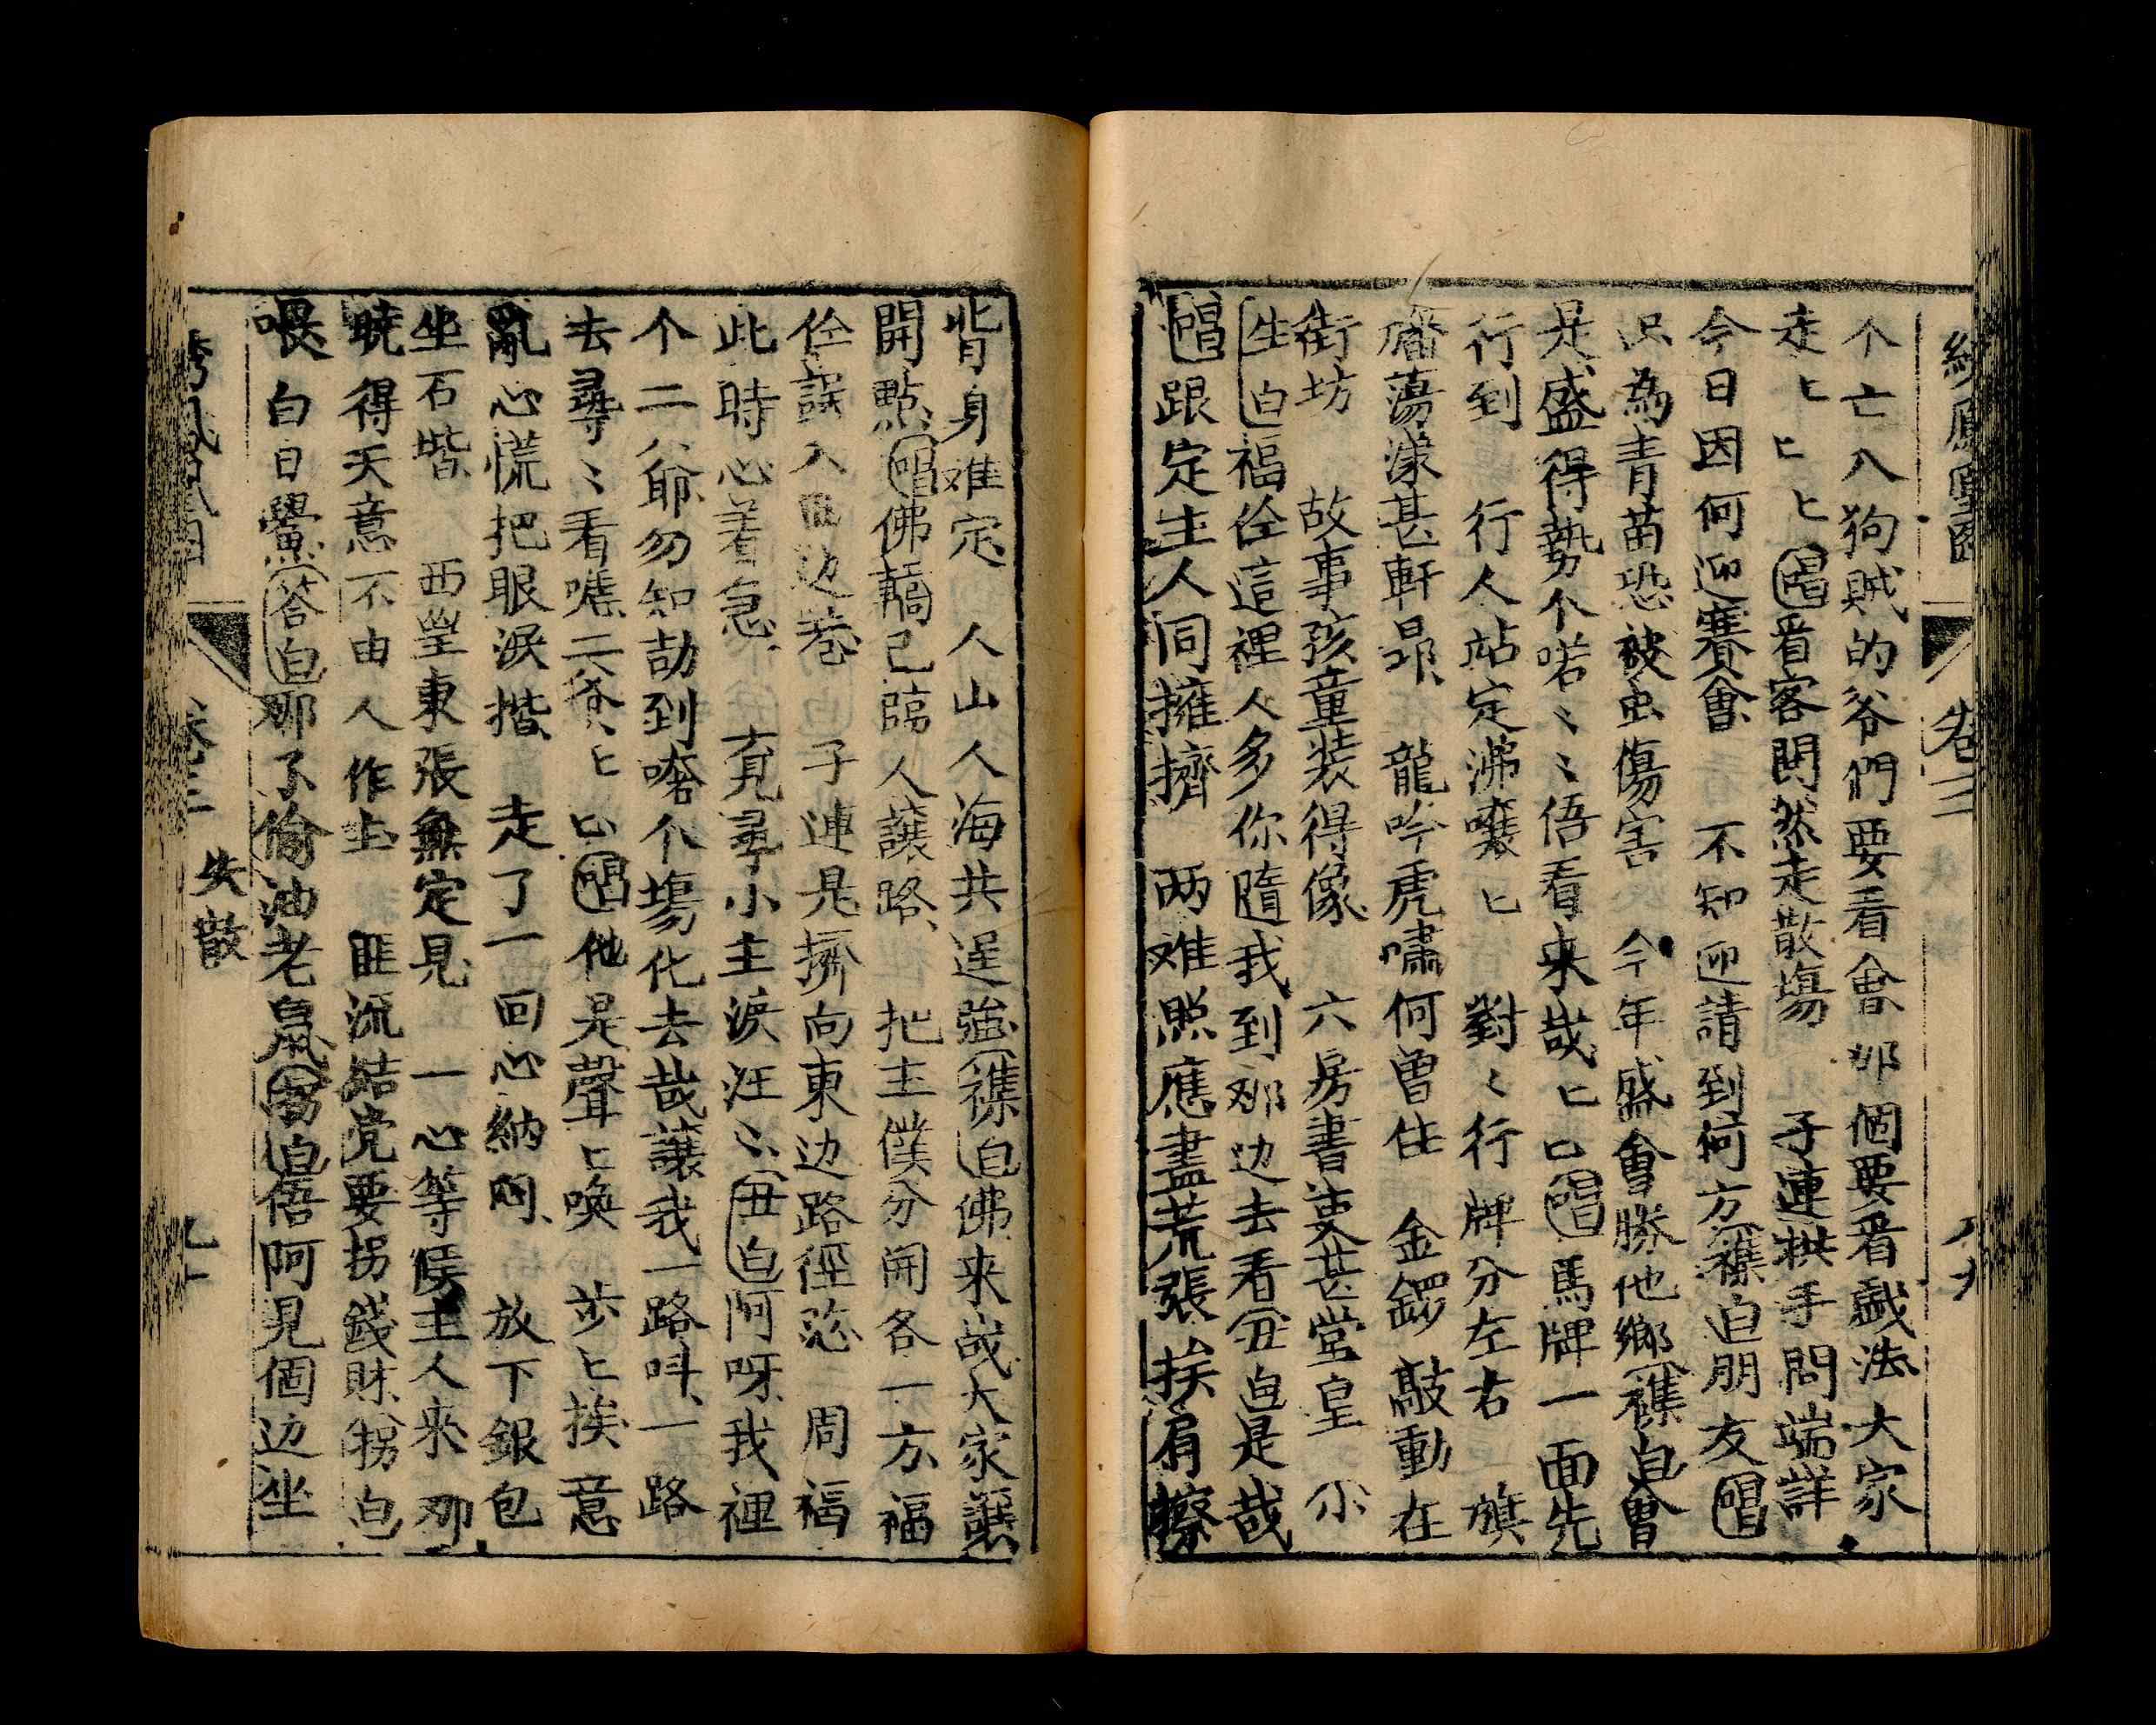 卷三
个亡八狗賊的爷們要看會那個要看戱法大家
走匕匕匕唱看客鬨然走散塲 子連拱手問端詳
今日因何迎賽會 不知迎請到何方襍白朋友唱
只為青苗恐被虫傷害 今年盛會勝他鄉襍白曾
是盛得勢个喏〻〻俉看来哉匕匕唱馬牌一面先
行到 行人站定沸嚷匕 對〻行牌分左右 旗
旛蕩漾甚軒昂 龍吟虎嘯何曾住 金鑼敲動在
街坊 故事孩童装得像 六房書吏甚堂皇 尔
生白福佺這裡人多你隨我到那边去看丑白是哉
唱跟定主人同擁擠 两难照應盡荒張 挨肩擦
背身难定 人山人海共逞強襍白佛来哉大家讓
開點唱佛轎已臨人讓路 把主僕分開各一方福
佺誤入西边巷 子連是擠向東边路徑 周福
此時心着急 尋小主淚汪〻丑白阿呀我裡
个二爷勿知勀到嗒个塲化去哉讓我一路呌一路
去尋〻看嘘二爷匕匕唱他是聲匕喚 步匕挨意
亂心慌把眼淚揩 走了一回心納悶 放下銀包
坐石堦 西望東張無定見 一心等侯主人来
曉得天意不由人作主 匪流結党要拐錢財拐白
喂白日鱟答白那不偷油老鼠拐白俉阿見個边坐
卷三 失散 九十